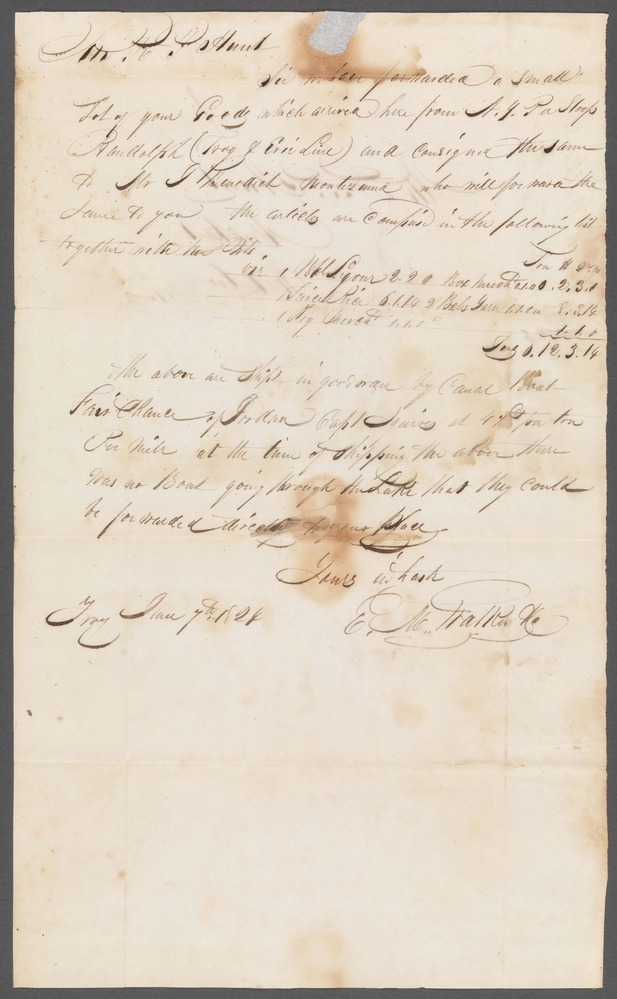 Mr. R. P. Hunt
Sir we have forwarded a small
Lot of your Goods which arrived here from N. Y. Per Sloop
Randolph (Troy & Erie Line) and consigned the same
to Mr J Benedict Montezuma who will forward the
same to you the articles are Comprised in the following list
together with the
viz 1 Liquor 2.2.0 Box 0.2.3.0
Tierce Rice 6.1.14 2 Bales 8.3.14
1 Keg 1.1.0
Tons 0.12.3.14
The above are Shipt in good order by Canal Boat
Fair Chance of Jordan Capt at per ton
Per mile at the time of Shipping the above there
was no Boat going through the Lake that they could
be forwarded directly to your Place
Yours in haste
Troy June 7th 1828 E. M. Walker & Co